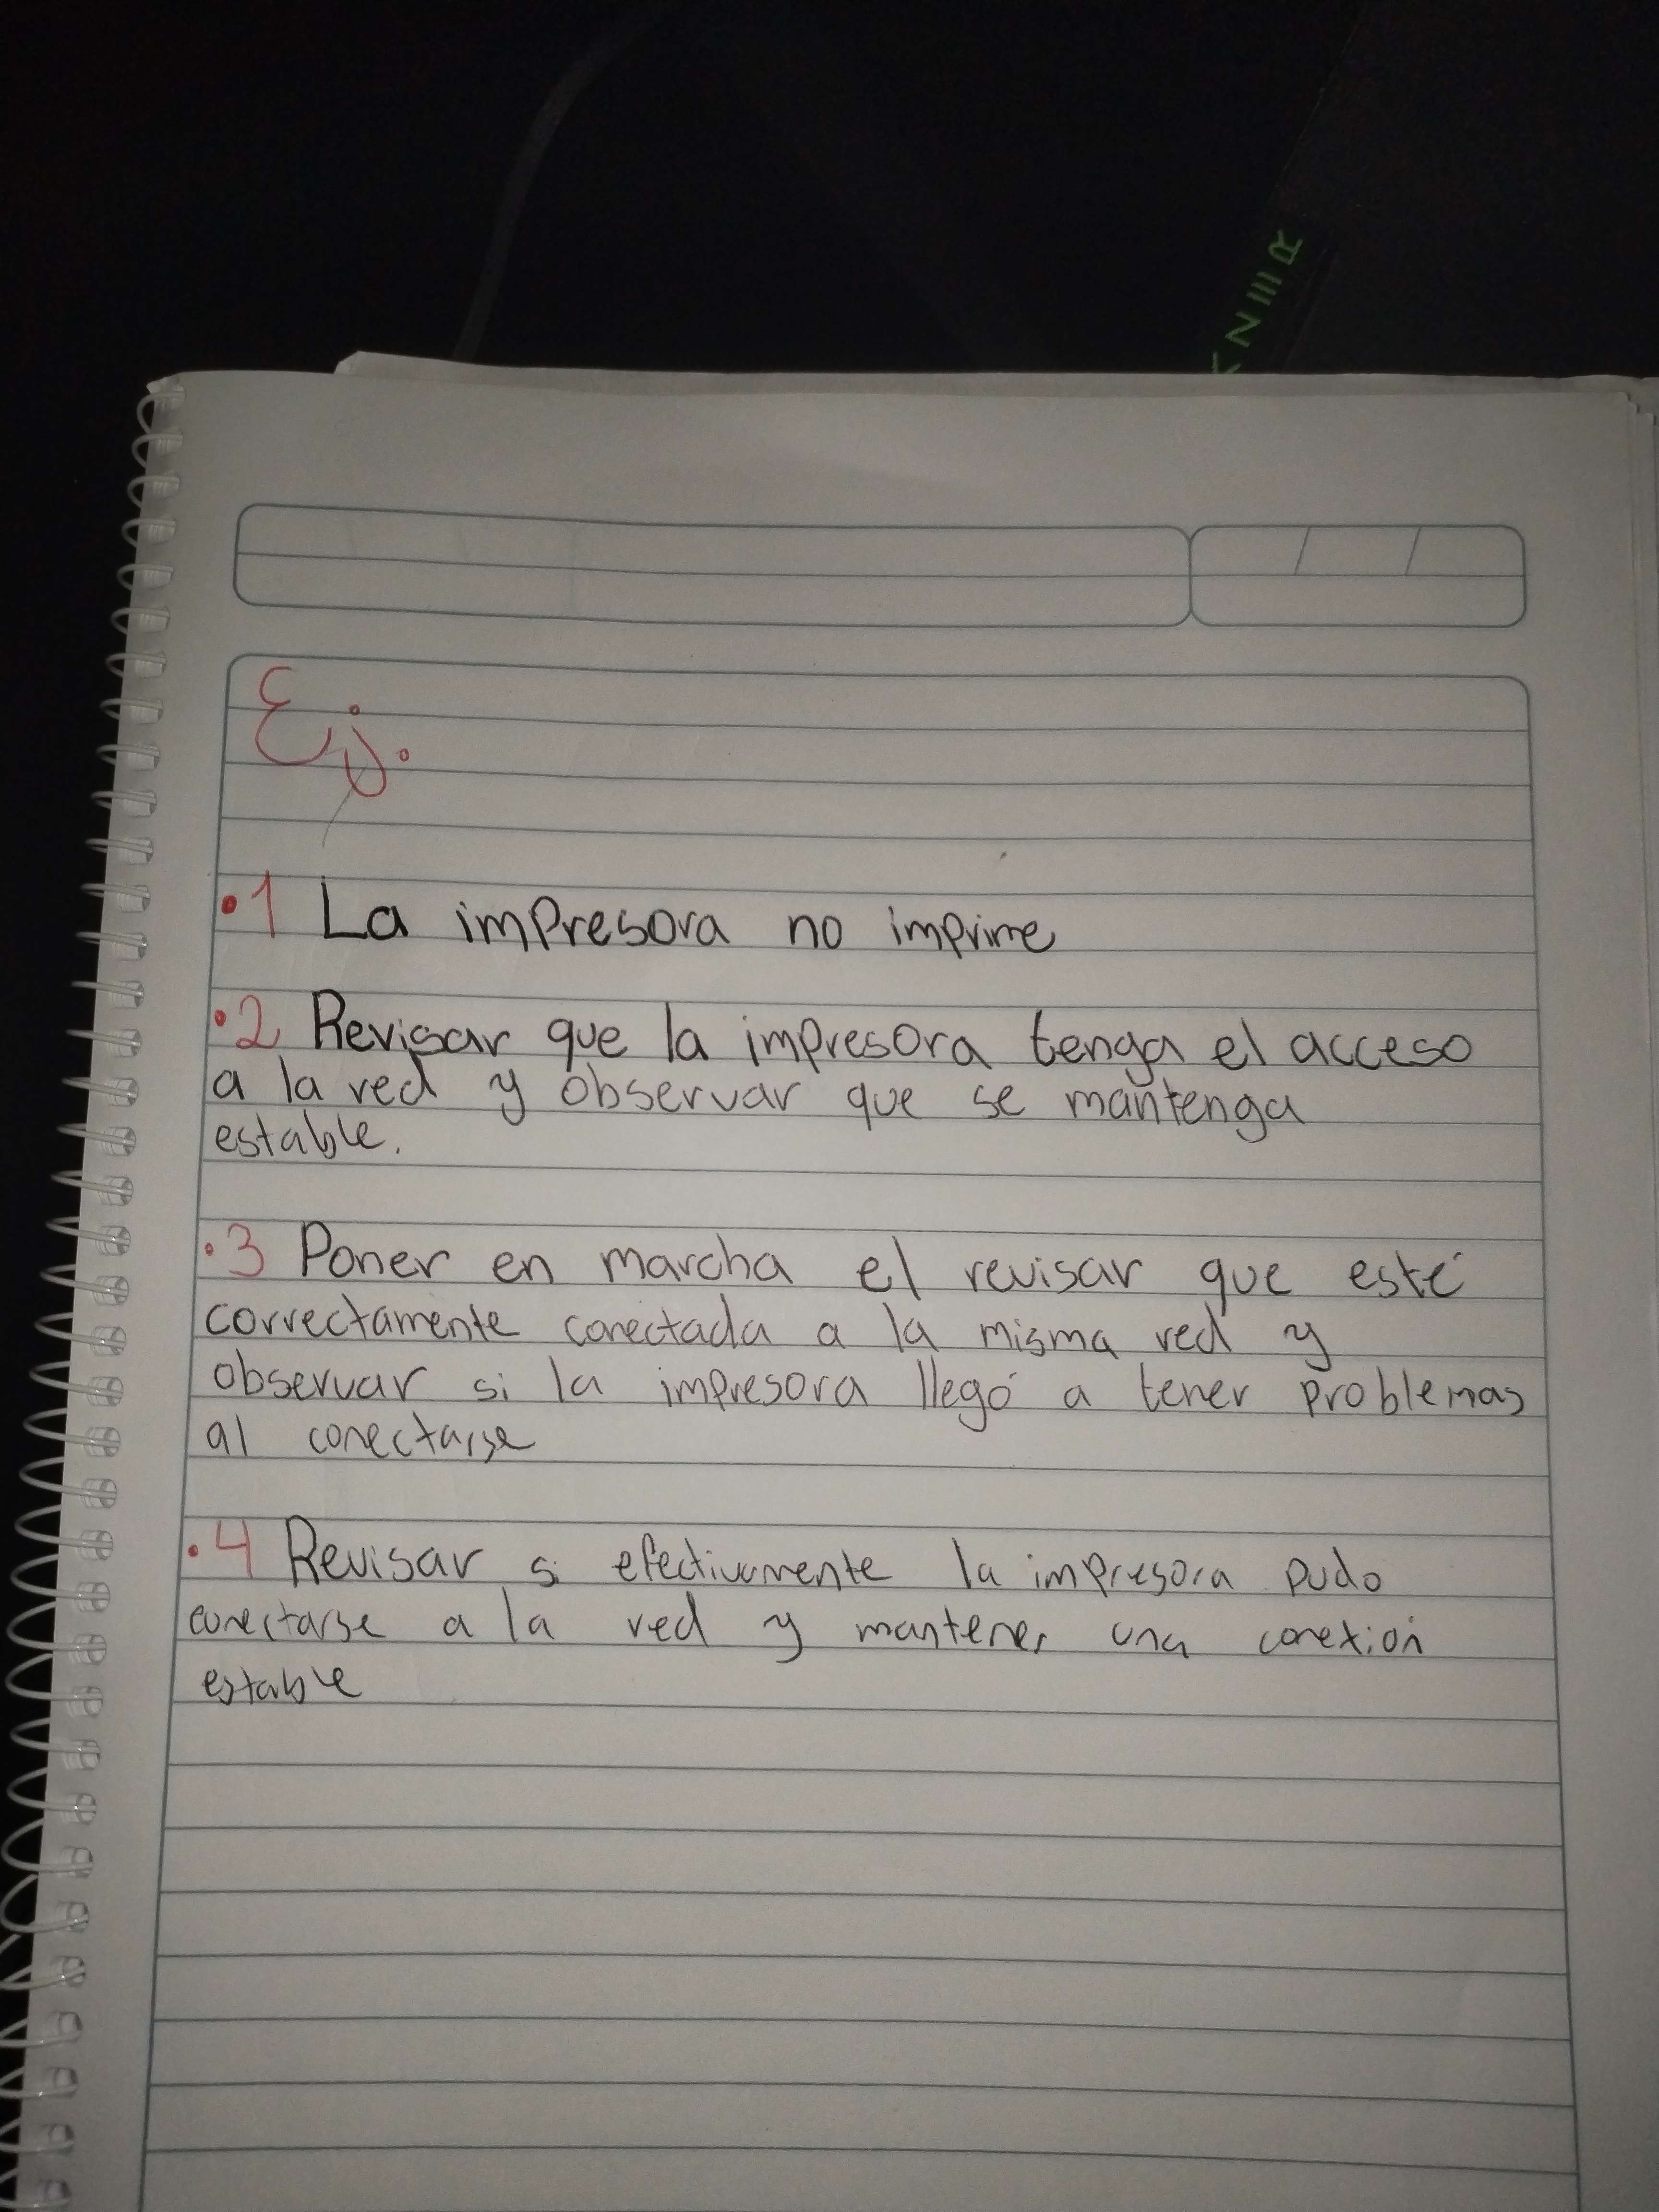 KNIIIR
Ej.
•1 La impresora no imprime
•2 Revisar que la impresora tenga el acceso
a la red y observar que se mantenga
estable.
•3 Poner en marcha el revisar que esté
correctamente conectada a la misma red y
observar si la impresora llegó a tener problemas
al conectarse
•4 Revisar si efectivamente la impresora pudo
conectarse a la red y mantener una conexión
estable